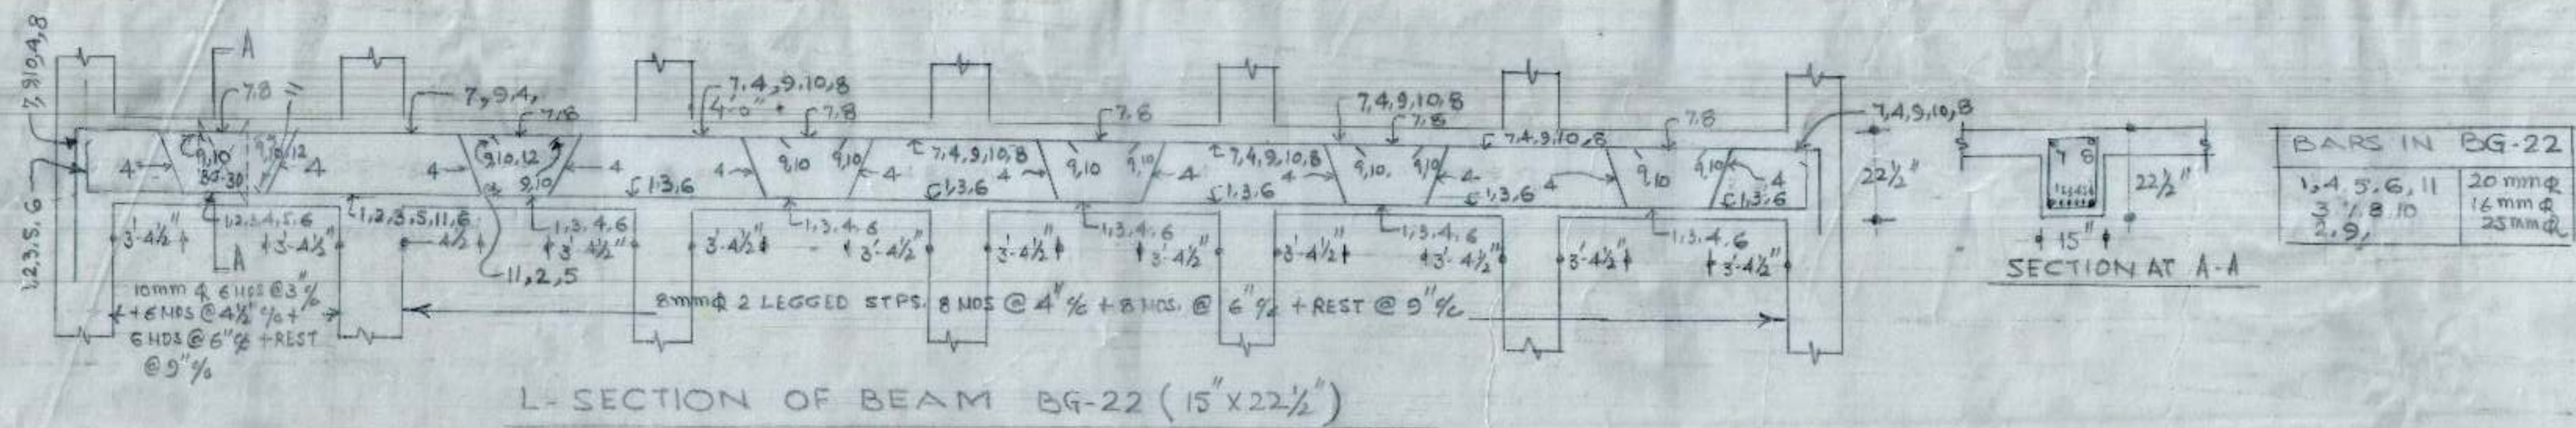 7,9,10,4,8
1,2,3,5,6
A
7.8
7,9,4,
7,8
7,4,9,10,8
4'-0"
7,8
7,8
7,4,9,10,8
7,8
7,4,9,10,8
7,8
7,4,9,10,8
4
9,10
BG-30
4
4
9,10,12
9,10
4
1,3,6
4
9,10
9,10
4
7,4,9,10,8
1,3,6
4
9,10
9,10
4
7,4,9,10,8
1,3,6
4
9,10.
9,10
4
1,3,6
4
9,10
9,10
4
1,3,6
22½"
1,2,3,4,5,6
1,2,3,5,11,6
1,3,4,6
1,3,4,6
1,3,4,6
1,3,4,6
1,3,4,6
3'-4½"
3'-4½"
4½"
3'-4½"
3'-4½"
3'-4½"
3'-4½"
3'-4½"
3'-4½"
3'-4½"
3'-4½"
3'-4½"
A
11,2,5
10mm φ 6 NOS @ 3" c/c
+ 6 NOS @ 4½" c/c +
6 NOS @ 6" c/c + REST
@ 9" c/c
8mm φ 2 LEGGED STPS. 8 NOS @ 4" c/c + 8 NOS. @ 6" c/c + REST @ 9" c/c
L-SECTION OF BEAM BG-22 (15"X22½")
7 8
22½"
15"
SECTION AT A-A
BARS IN BG-22
1,4,5,6,11 20mm φ
3,7,8,10 16mm φ
2,9, 25mm φ